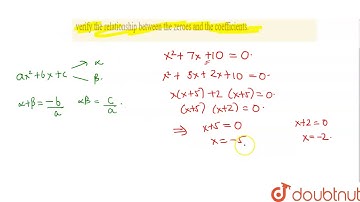 verify the relationship between the zeroes and the coefficients.
ax²+bx+c
α
β
α+β = -b/a
αβ = c/a
x²+7x+10 = 0
x²+5x+2x+10 = 0
x(x+5)+2(x+5) = 0
(x+5)(x+2) = 0
⇒ x+5 = 0
x = -5
x+2 = 0
x = -2
doubtnut